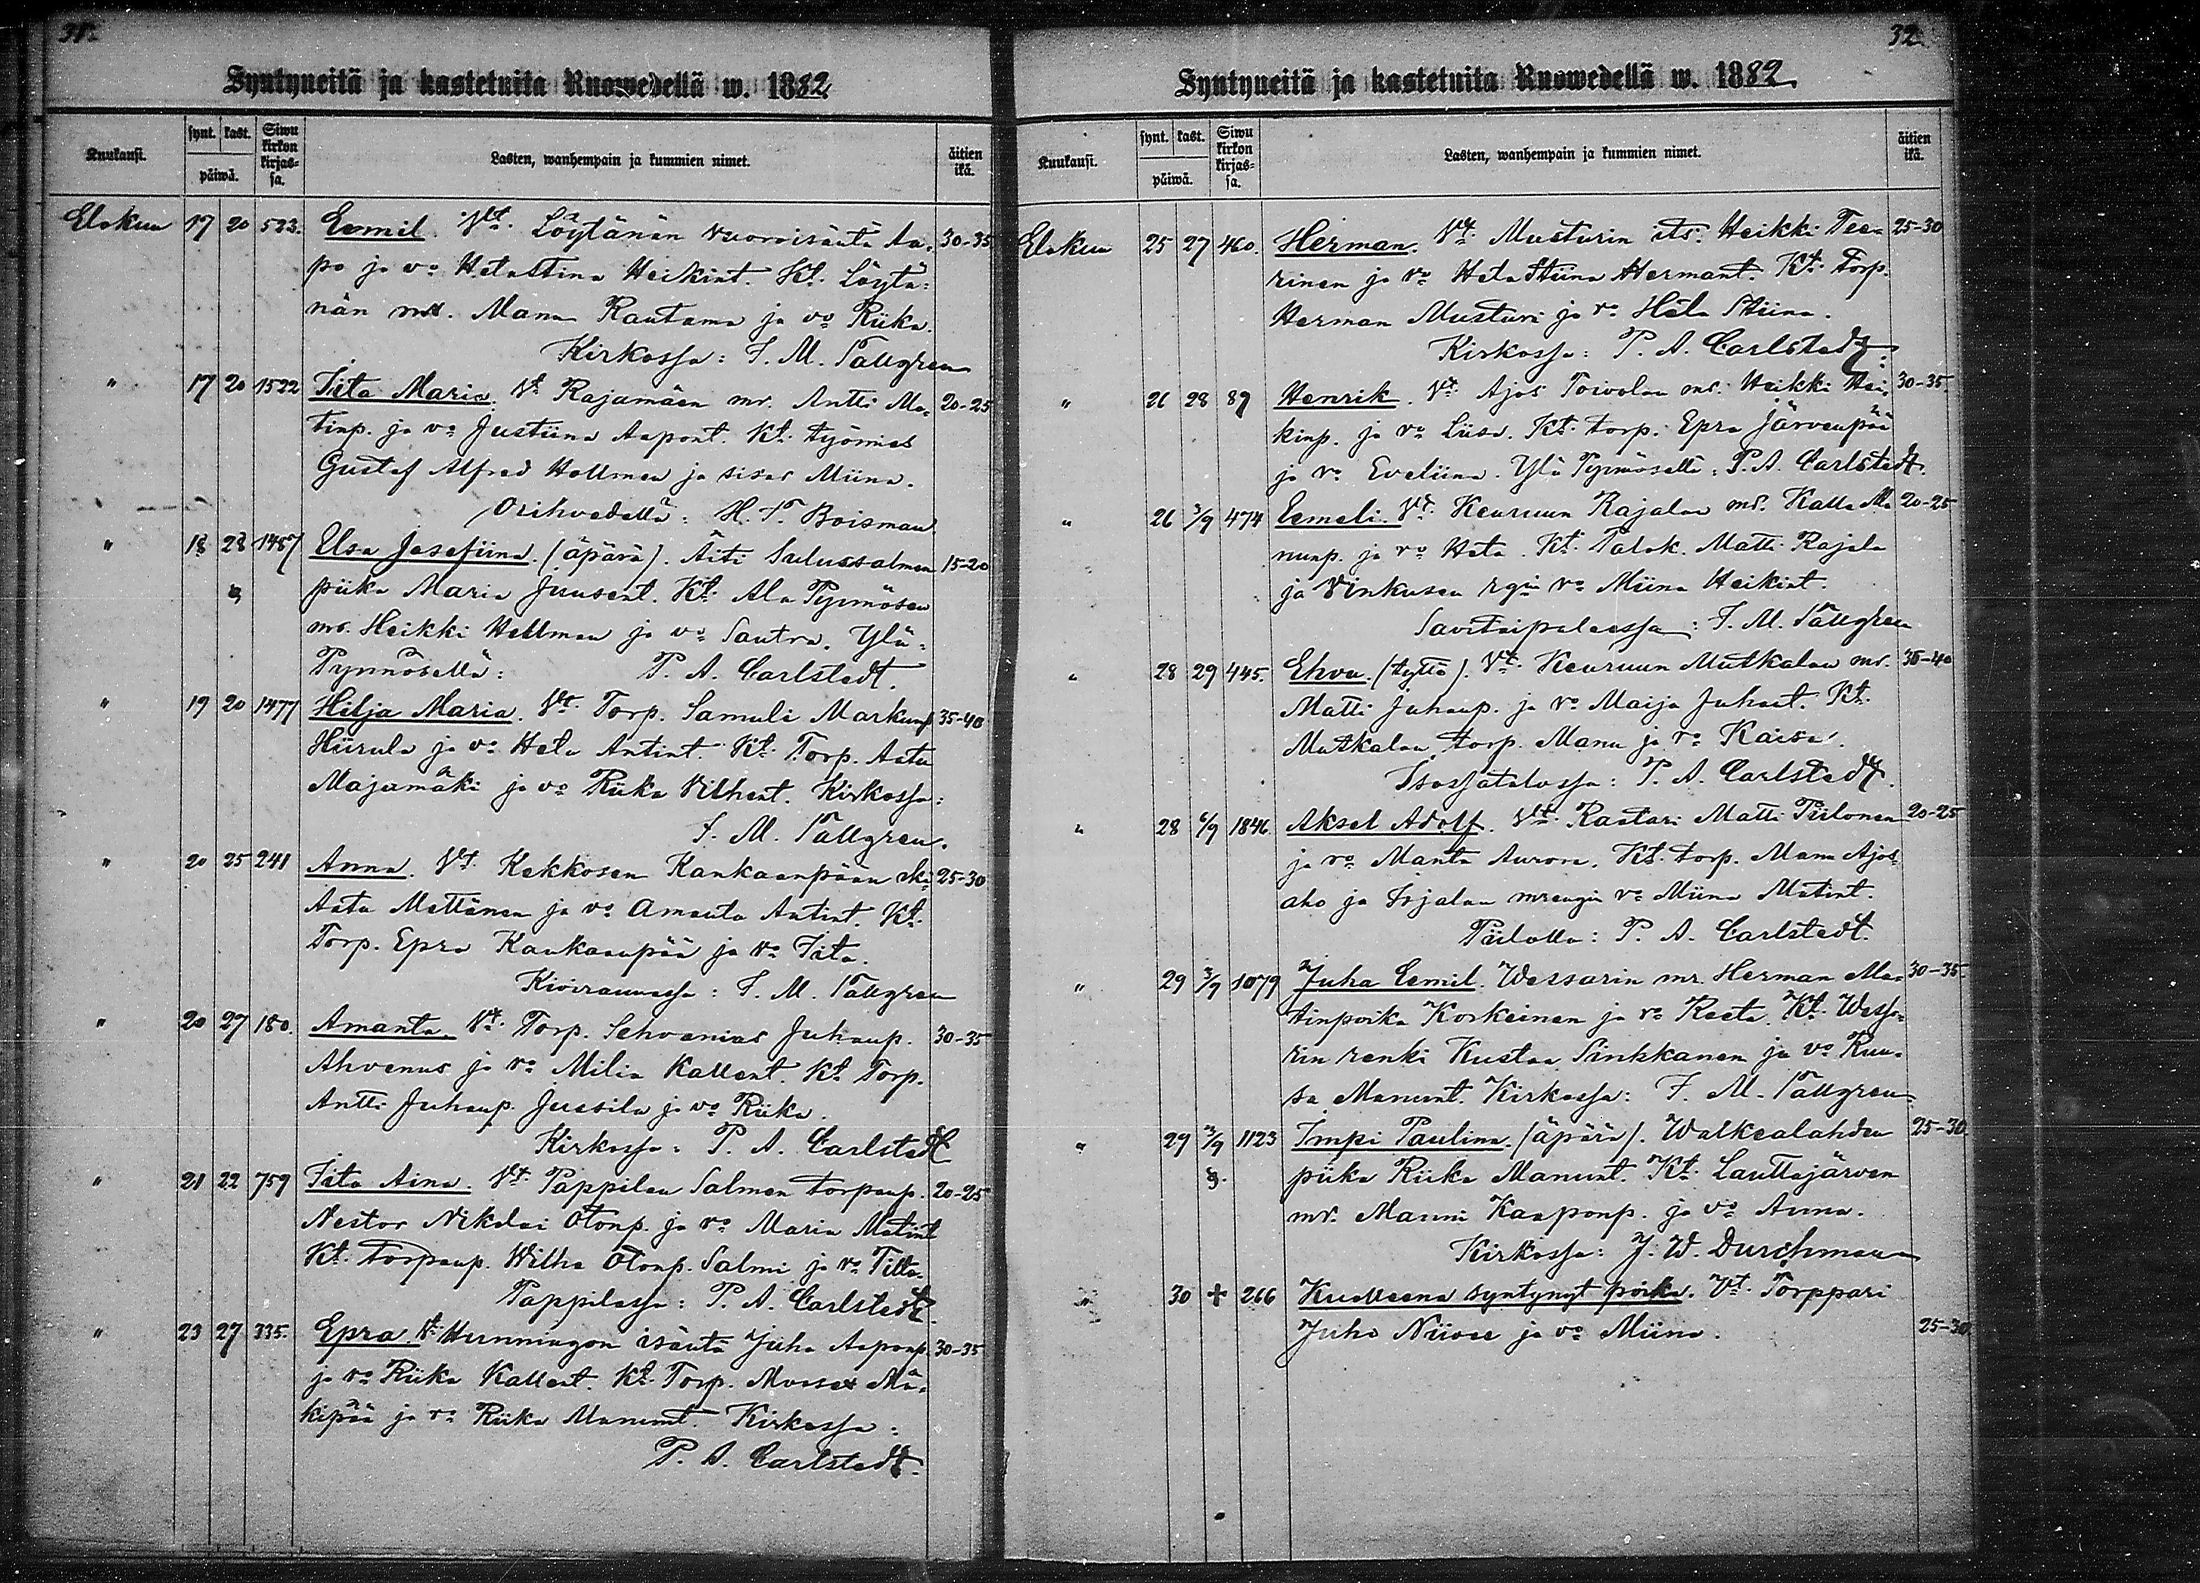 31.
Syntyneitä ja kastetuita Ruowedellä w. 1882
Kuukausi.
synt. kast.
päiwä.
Siwu kirkon kirjas-sa.
Lasten, wanhempain ja kummien nimet.
äitien ikä.
Elokuu 17 20 523. Eemil. Vt. Löytänän vuoroisäntä Aa- 30-35
po ja vo Hetastina Heikint. Kt. Löytä-
nän mr. Manu Rautama ja vo Riika.
Kirkossa: F. M. Tallgren
" 17 20 1522 Iita Maria. Vt. Rajamäen mr. Antti Ma- 20-25
tinp. ja vo Justiina Aapont. Kt. työmies
Gustaf Alfred Hollmen ja sisar Miina.
Orihvedellä: H. F. Boisman
" 18 28 1487 Elsa Josefiina. (äpärä). Äiti Sulussalmen 15-20
piika Maria Juusent. Kt. Ala Pynnösen
mr. Heikki Hellman ja vo Santra. Ylä-
Pynnösellä: P. A. Carlstedt.
" 19 20 1477 Hilja Maria. Vt. Torp. Samuli Markunp 35-40
Hiirula ja vo Heta Antint. Kt. Torp. Aatu
Majamäki ja vo Riika Vilhent. Kirkossa:
F. M. Tallgren.
" 20 25 241 Anna. Vt. Kekkosen Kankaanpään 25-30
Aatu Mettänen ja vo Amanta Antint. Kt.
Torp. Epra Kankaanpää ja vo Iita.
Kivirannassa: F. M. Tallgren
" 20 27 180. Amanta. Vt. Torp. Sehvanias Juhanp. 30-35
Ahvenus ja vo Milia Kallent. Kt. Torp.
Antti Juhanp. Jussila ja vo Riika.
Kirkossa: P. A. Carlstedt
" 21 22 759 Iita Aina. Vt. Pappilan Salmen torpanp. 20-25
Nestor Nikolai Otonp. ja vo Maria Matint
Kt. torpanp. Wilho Otonp. Salmi ja vo Tilta.
Pappilassa: P. A. Carlstedt.
" 23 27 335. Epra. Vt. Hunningon isäntä Juha Aaponp. 30-35
ja vo Riika Kallent. Kt. Torp. Mooses Mä-
kipää ja vo Riika Manunt. Kirkossa:
P. A. Carlstedt.
32.
Syntyneitä ja kastetuita Ruowedellä w. 1882
Kuukausi.
synt. kast.
päiwä.
Siwu kirkon kirjas-sa.
Lasten, wanhempain ja kummien nimet.
äitien ikä.
Elokuu 25 27 460. Herman. Vt. Musturin its. Heikki Tee- 25-30
rinen ja vo Heta Stiina Hermant. Kt. Torp.
Herman Musturi ja vo Heta Stiina.
Kirkossa: P. A. Carlstedt.
" 26 28 89 Henrik. Vt. Ajos Toivolan mr. Heikki Hei- 30-35
kinp. ja vo Liisa. Kt. torp. Epra Järvenpää
ja vo Eveliina. Ylä Pynnösellä: P. A. Carlstedt.
" 26 3/9 474 Eemeli. Vt. Keuruun Rajalan mr. Kalle Ma 20-25
nunp. ja vo Heta. Kt. Talok. Matti Rajala
ja Vinkusen rgin vo Miina Heikint.
Savitaipaleessa: F. M. Tallgren
" 28 29 445. Ehva. (tyttö). Vt. Keuruun Mutkalan mr. 35-40
Matti Juhanp. ja vo Maija Juhant. Kt.
Mutkalan torp. Manu ja vo Kaisa.
P. A. Carlstedt.
" 28 6/9 1846. Aksel Adolf. Vt. Rastari Matti Piilonen 20-25
ja vo Manta Aurora. Kt. torp. Manu Ajos-
aho ja Irjalan mrengin vo Miina Matint.
Piilolla: P. A. Carlstedt.
" 29 3/9 1079 Juha Eemil. Wessarin mr. Herman Ma- 30-35.
tinpoika Korkeinen ja vo Reeta. Kt. Wessa-
rin renki Kustaa Sinkkanen ja vo Ruu-
sa Manunt. Kirkossa: F. M. Tallgren
" 29 3/9 1123 Impi Paulina. (äpärä). Walkealahden 25-30.
piika Riika Manunt. Kt. Lauttajärven
mr. Manni Kaaponp. ja vo Anna.
Kirkossa: J. W. Durchman
" 30 + 266 Kuolleena syntynyt poika. Vt. Torppari
Juha Niisee ja vo Miina. 25-30